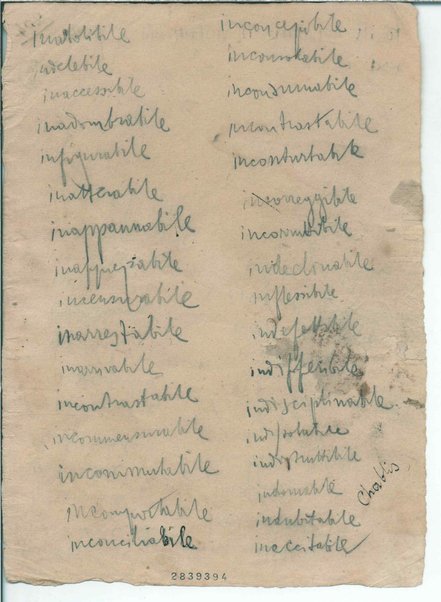 inabolibile
indelebile
inaccessibile
inadombrabile
infigurabile
inatterabile
inappannabile
inapprezzabile
incensurabile
inarrestabile
inarrivabile
incontrastabile
incommensurabile
incommutabile
incomportabile
inconciliabile
inconcepibile
inconsolabile
inconsumabile
incontrastabile
inconturbabile
incorreggibile
indeclinabile
inflessibile
indefettibile
indifferibile
indisciplinabile
indistruttibile
indomabile
indubitabile
ineccitabile
Chablis
2839394